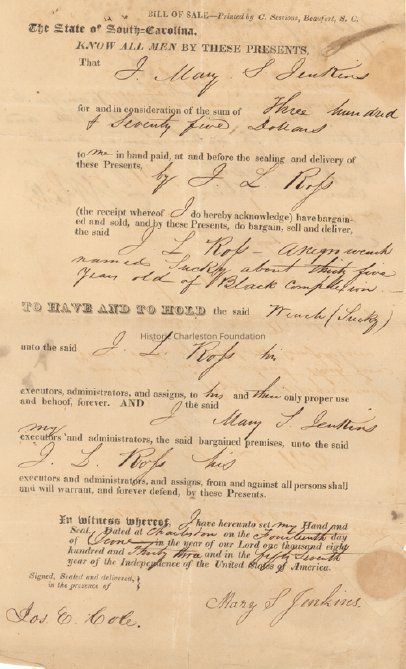 BILL OF SALE—Printed by C. Sessions, Beaufort, S. C.
The State of South-Carolina.
KNOW ALL MEN BY THESE PRESENTS,
That I, Mary S Jenkins
for and in consideration of the sum of Three hundred
& Seventy five, Dollars
to me in hand paid, at and before the sealing and delivery of
these Presents,
by J. L Ross
(the receipt whereof I do hereby acknowledge) have bargain-
ed and sold, and by these Presents, do bargain, sell and deliver,
the said
J L Ross - A negro wench
named Sucky about thirty five
Years old of Black Complexion
TO HAVE AND TO HOLD the said Wench (Sucky)
Historic Charleston Foundation
unto the said J. L. Ross his
executors, administrators, and assigns, to his and their only proper use
and behoof, forever. AND I the said
Mary S. Jenkins
my
executors and administrators, the said bargained premises, unto the said
J. L. Ross his
executors and administrators, and assigns, from and against all persons shall
and will warrant, and forever defend, by these Presents.
In witness whereof, I have hereunto set my Hand and
Seal. Dated at Charleston on the Fourteenth day
of in the year of our Lord one thousand eight
hundred and Thirty three and in the fifty Seventh
year of the Independence of the United States of America.
Signed, Sealed and delivered,
in the presence of
Mary S Jenkins.
Jos E. Cole.